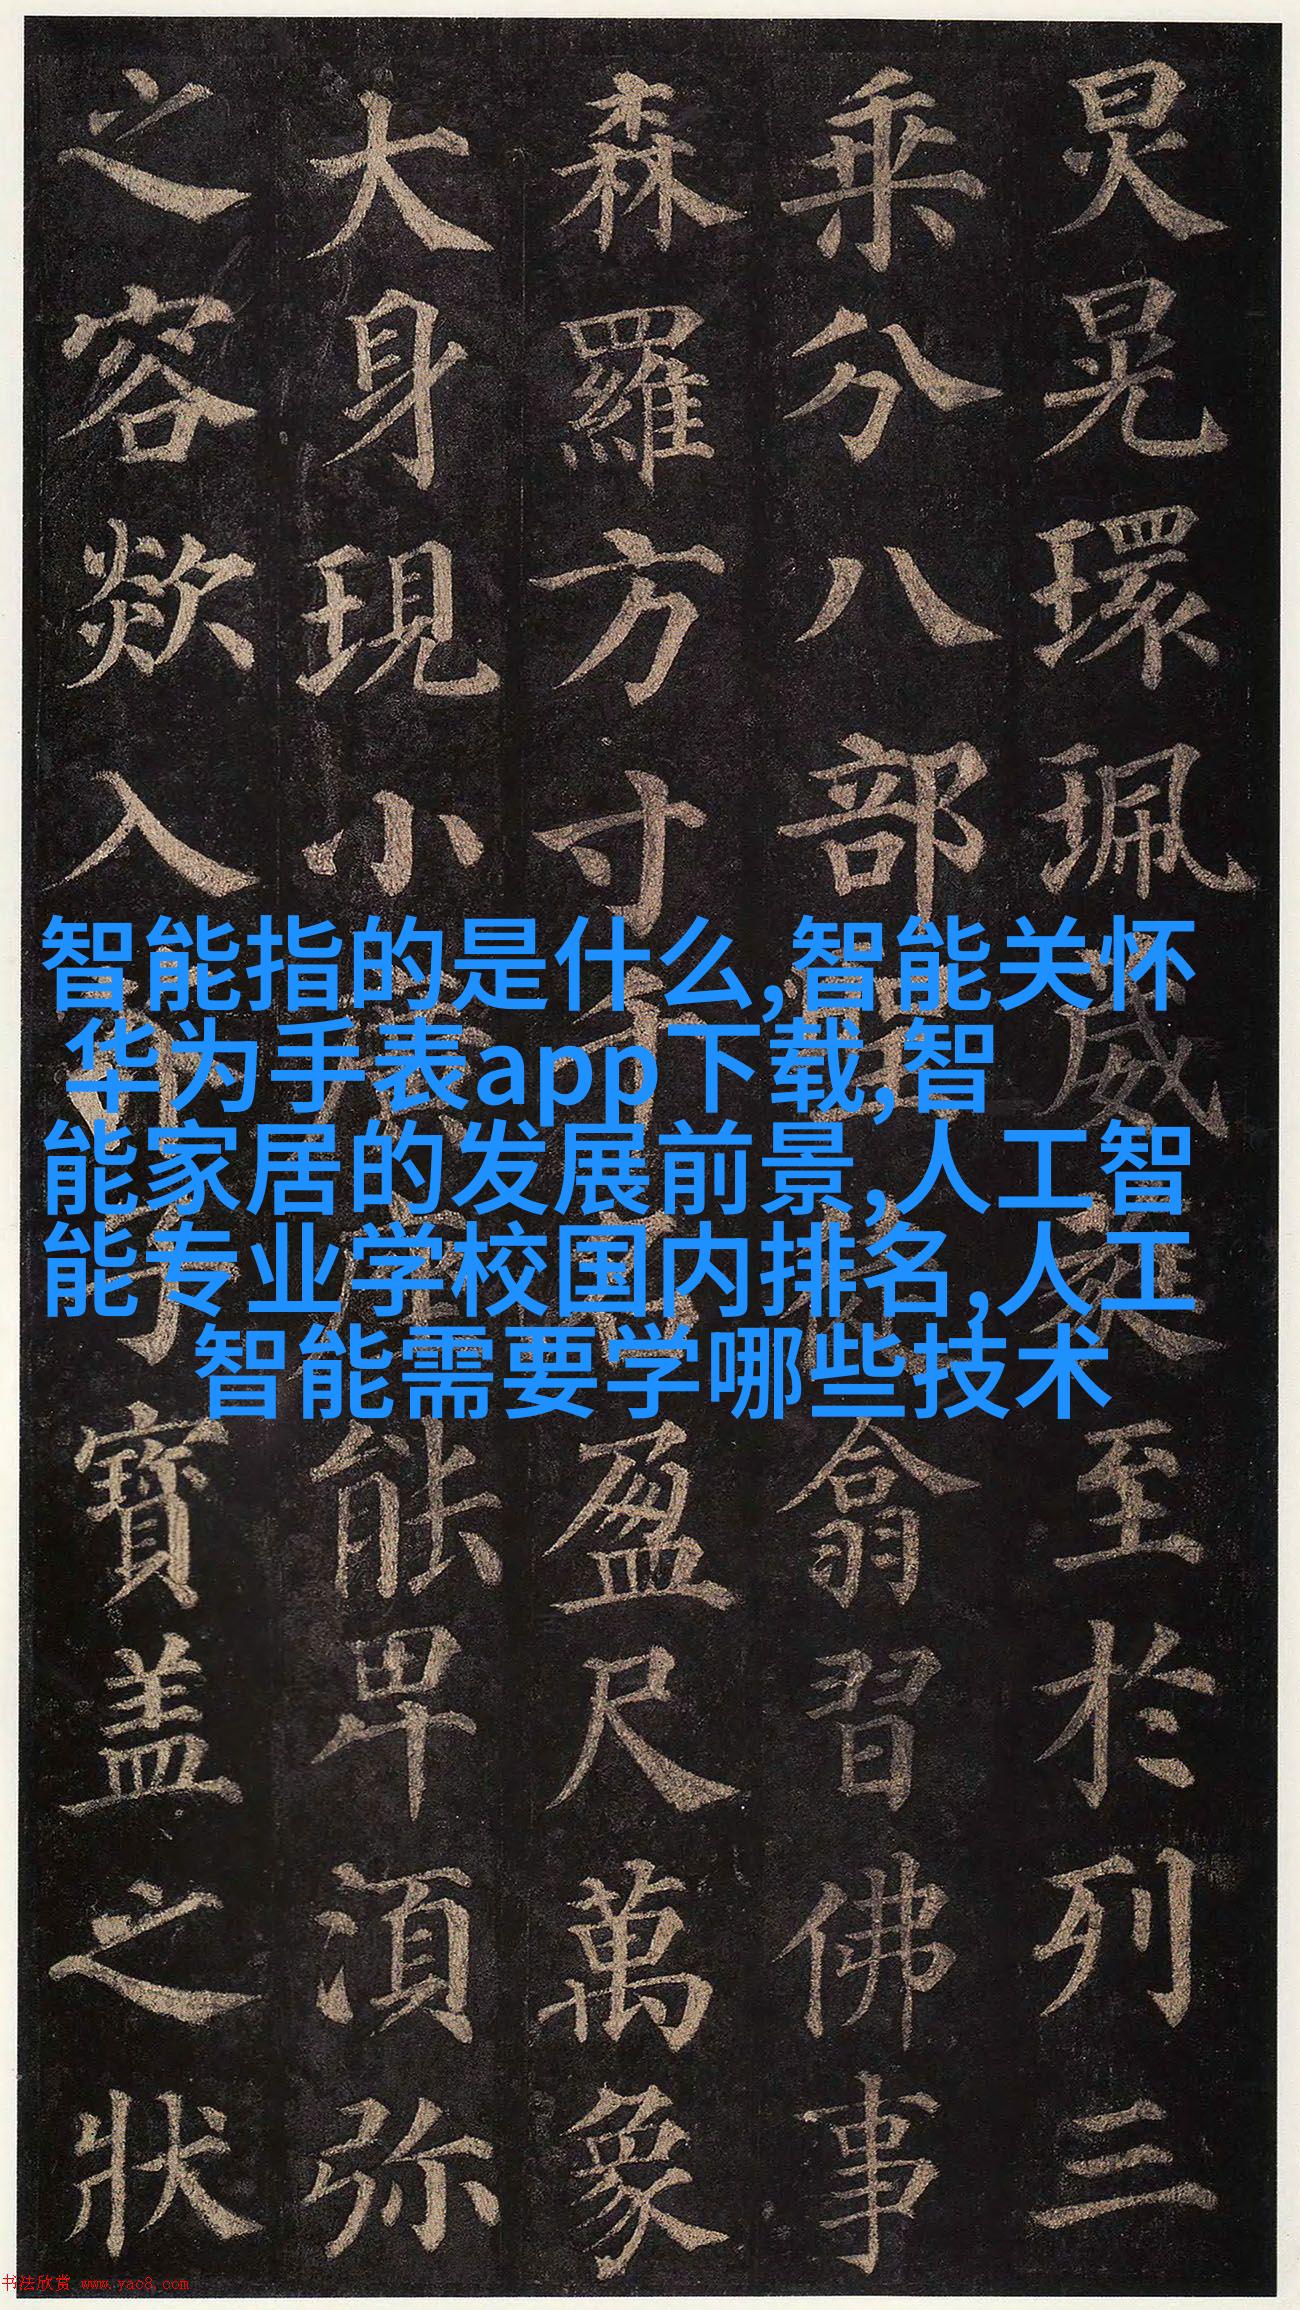 炅晃環珮葳蕤至於列三
乘分八部翕習佛事
森羅方寸盈尺萬象
大身現小能卑須弥
之容欻入寶盖之狀
智能指的是什么,智能关怀
华为手表app下载,智
能家居的发展前景,人工智
能专业学校国内排名,人工
智能需要学哪些技术
书法欣赏 www.yac8.com